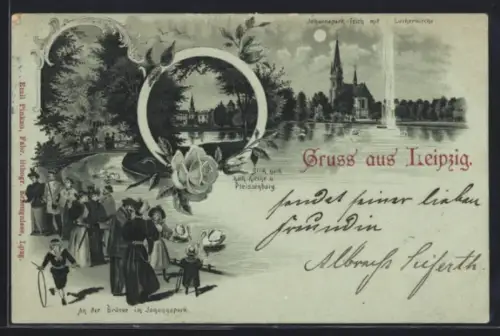 Johannapark-Teich mit Lutherkirche
Blick nach
kath. Kirche u.
Pleissenburg.
Gruss aus Leipzig.
sendet seiner lieben
Freundin
Albrecht Seiferth.
An der Brücke im Johannapark.
Emil Pinkau, Fabr. lithogr. Erzeugnisse, Lpzg.